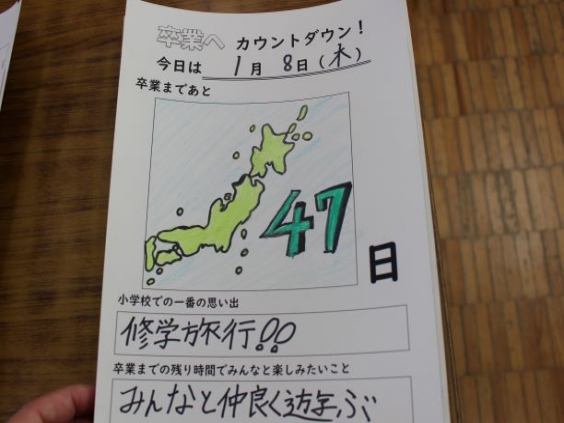 卒業へ カウントダウン!
今日は 1月 8日(木)
卒業まであと
47
日
小学校での一番の思い出
修学旅行!!
卒業までの残り時間でみんなと楽しみたいこと
みんなと仲良く遊ぶ